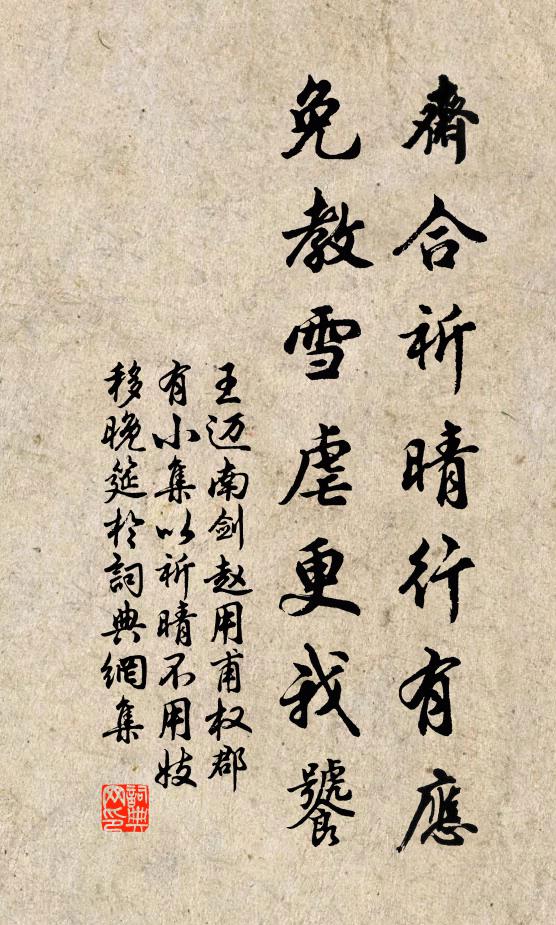 齋合祈晴行有應
免教雪虐更我饕
王迈南剑赵用甫权郡
有小集以祈晴不用妓
移晚筵於詞典網集
詞典网印